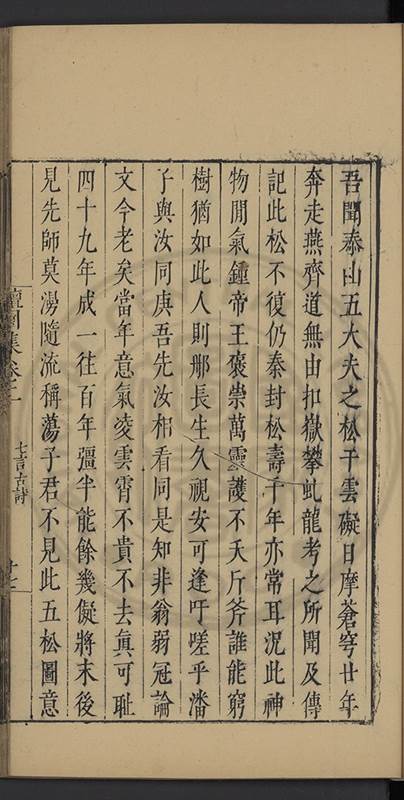 吾聞泰山五大夫之松干雲礙日摩蒼穹廿年
奔走燕齊道無由扣嶽攀虬龍考之所聞及傳
記此松不復仍秦封松壽千年亦常耳況此神
物閒氣鍾帝王褒崇萬靈護不夭斤斧誰能窮
樹猶如此人則那長生久視安可逢吁嗟乎潘
子與汝同庚吾先汝相看同是知非翁弱冠論
文今老矣當年意氣凌雲霄不貴不去真可耻
四十九年成一往百年彊半能餘幾儗將末後
見先師莫漫隨流稱蕩子君不見此五松圖意
集卷之
七言古詩